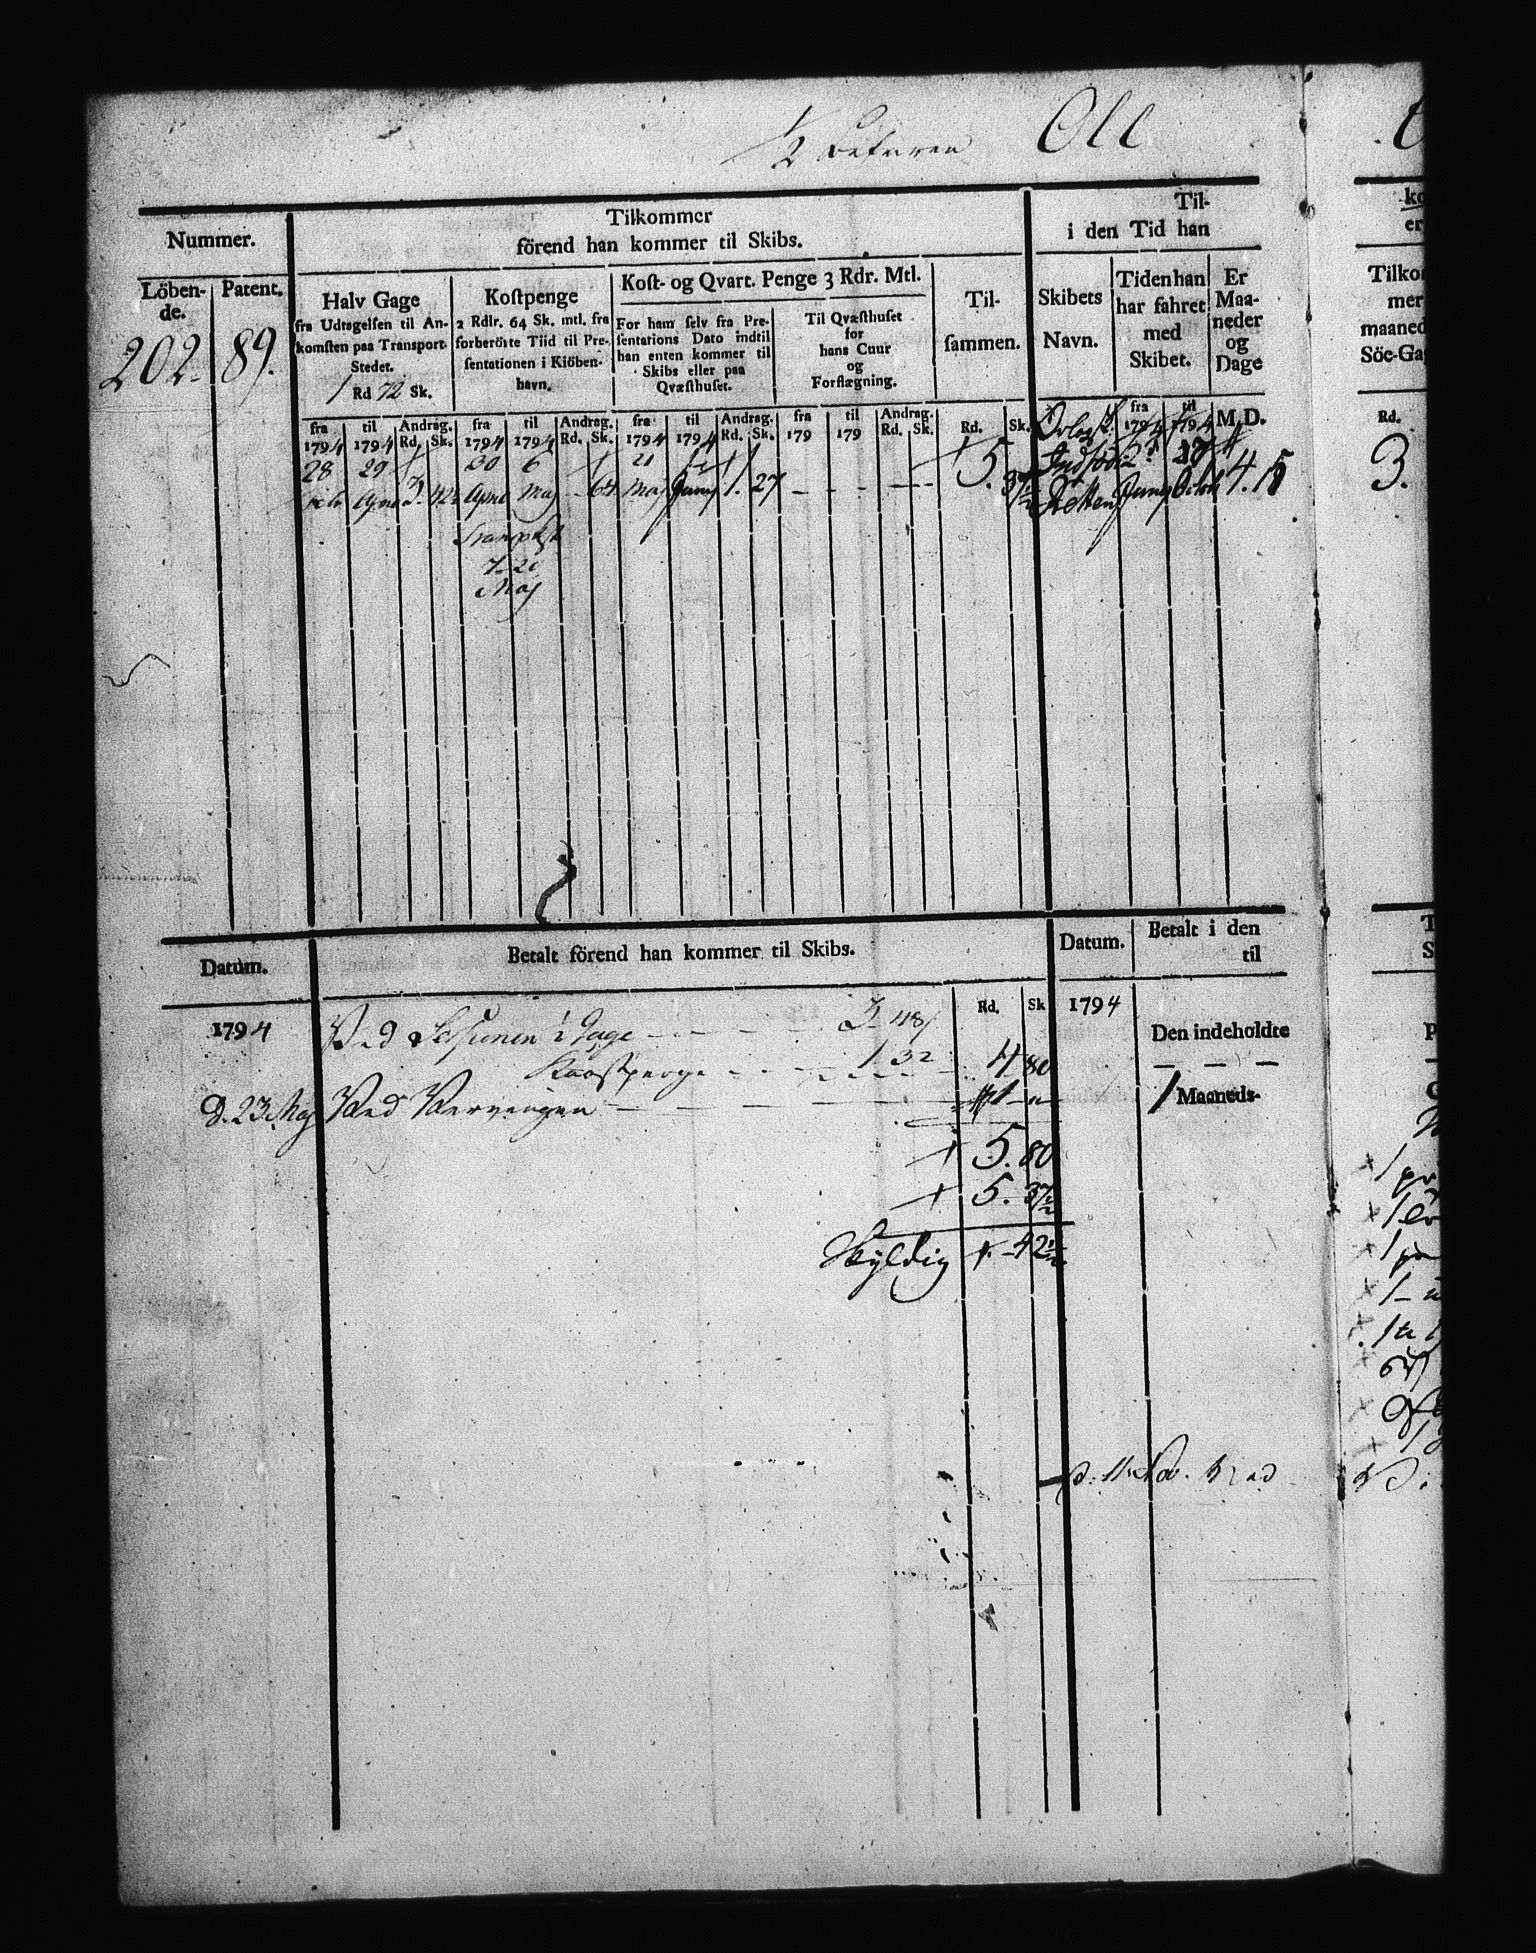 1/2 befaren Oll
Nummer.
Löben-
de.
Patent.
202. 89.
Tilkommer
förend han kommer til Skibs.
Halv Gage
fra Udtagelsen til An-
komsten paa Transport-
Stedet.
1 Rd 72 Sk.
Kostpenge
2 Rdlr. 64 Sk. mtl. fra
forberörte Tiid til Pre-
sentationen i Kiöben-
havn.
Kost- og Qvart. Penge 3 Rdr. Mtl.
For ham selv fra Pre-
sentations Dato indtil
han enten kommer til
Skibs eller paa
Qvæsthuset.
Til Qvæsthuset
for
hans Cuur
og
Forflægning.
Til-
sammen.
Til-
i den Tid han
Skibets
Navn.
Tiden han
har fahret
med
Skibet.
Er
Maa-
neder
og
Dage
fra til Andrag. fra til Andrag. fra til Andrag. fra til Andrag.
1794 1794 Rd. Sk. 1794 1794 Rd. Sk. 1794 1794 Rd. Sk. 179 179 Rd. Sk. Rd. Sk.
fra til
1794 1794 M. D.
28 29 30 6 21 5. 37 1/2
April April May 64 May Juny 1. 27
Orlog S.
Indföds 2 17
Retten Juny Octob 4. 15
Transpt
7-20
May
Datum.
Betalt förend han kommer til Skibs.
Datum.
Betalt i den
til
1794 Ved Sessionen i Gage 3 48
Rd. Sk
Kaastpenge 1 32 4 80
d. 23 May Ved Vervengen 1
5. 80
5. 37 1/2
Skyldig 42 1/2
1794
Den indeholdte
1 Maaneds-
d. 11 Nov.
ko
er
Tilkom
mer
maaned
Söe-Ga
Rd.
3.